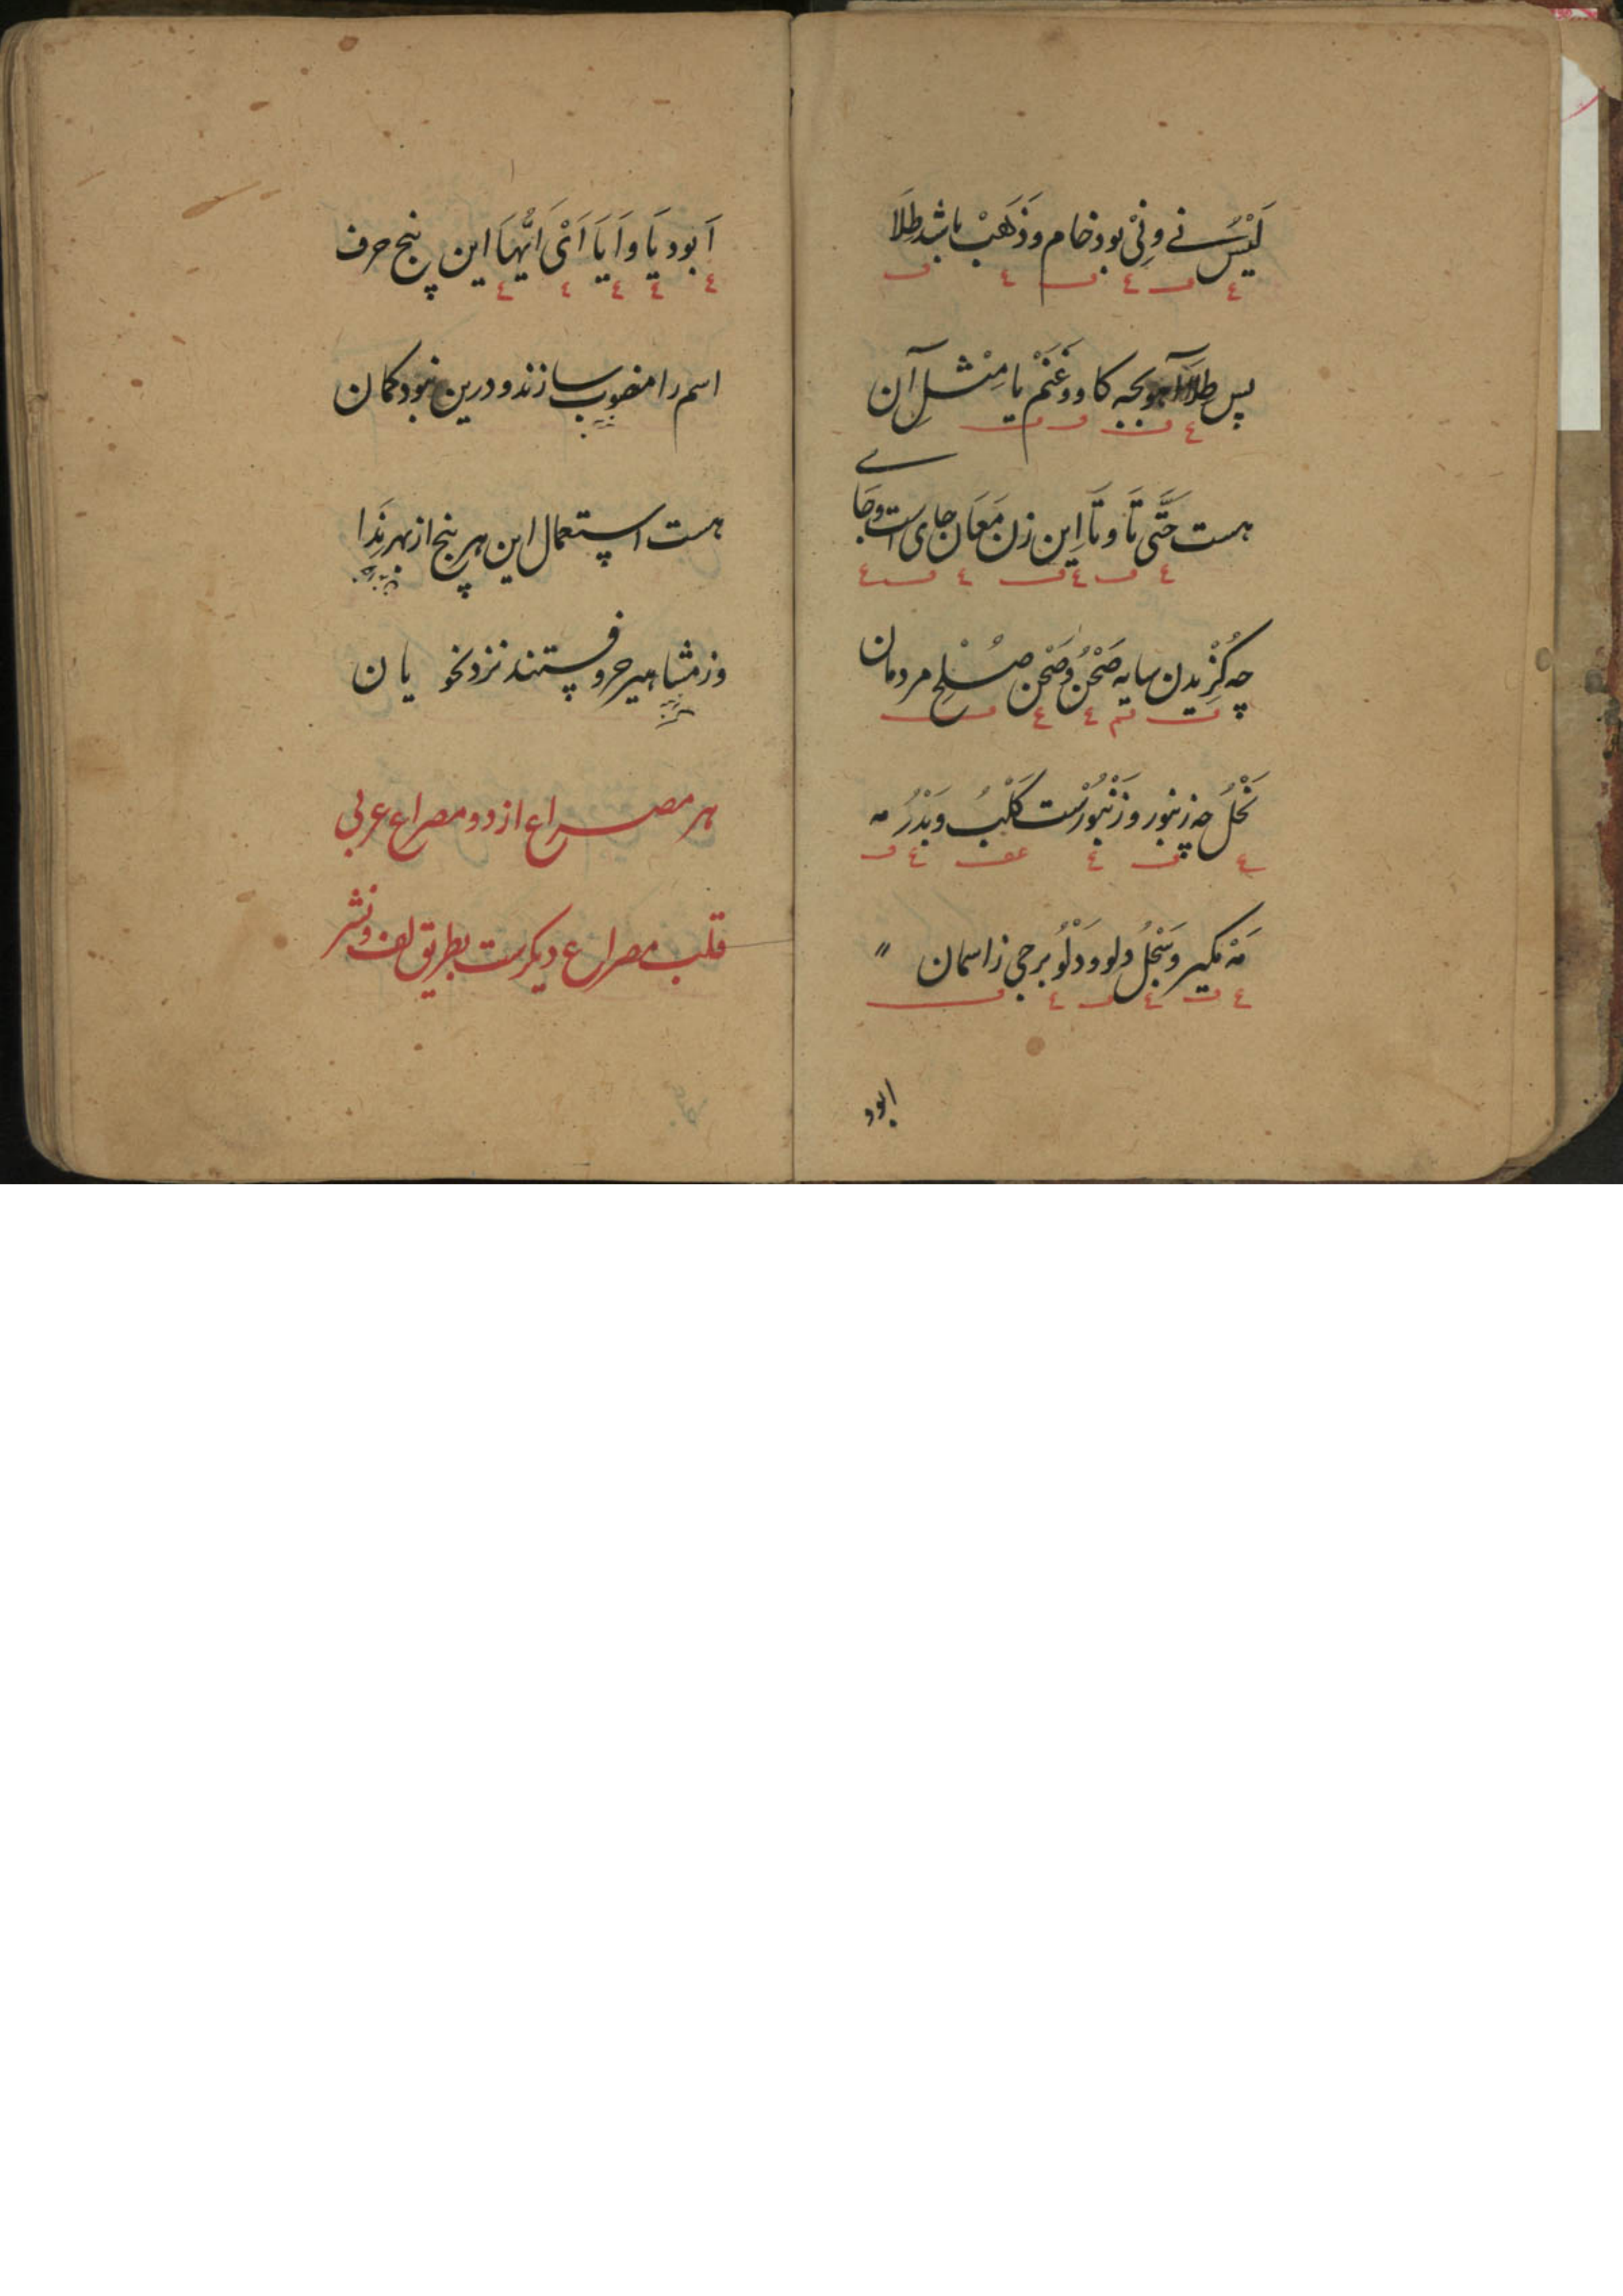 لَیْسَ نے و نِیْ بود خام و ذَهَبْ باشد طِلَا
پس طِلَا آهو بچه کاو و غَنَمْ یا مِثْلِ آن
هست حَتَّی تَا و تَا اِین زن مَعَان جای است و جَای
چه کُزِیدن سایه صَحْنُ و صَحْن صُلْحِ مردمان
نَحْلُ چه زنبور و زَنْبُوْرُسْت کَلْبُ و بَدْرُ مه
مَهْ مکیر و سَجْلُ دلو و دَلْوُ برجی ز اسمان
ابود
اَ بود یَا و اَیَا اَیْ اَیُّهَا این پنج حرف
اسم را منصوب سازند و درین نبود کمان
هست استعمال این هر پنج از بهر نِدَا
وز مشاهیر حروفستند نزد نحویان
هر مصراع از دو مصراع عربی
قلب مصراع دیکرست بطریق لف و نشر